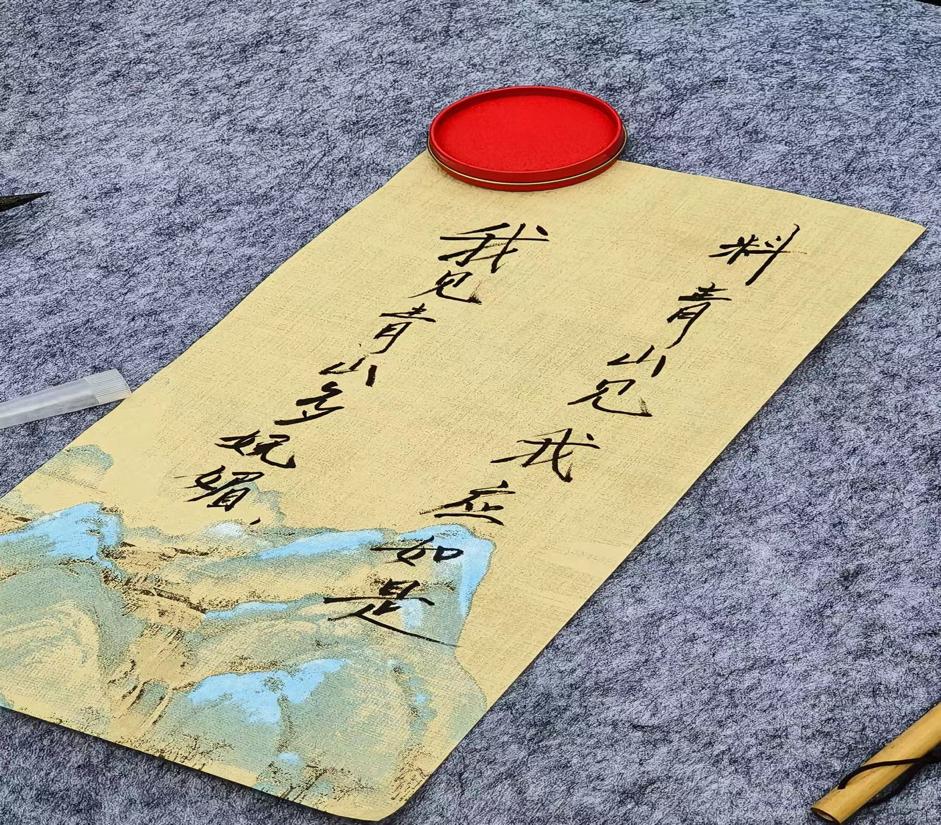 我见青山多妩媚，
料青山见我应如是